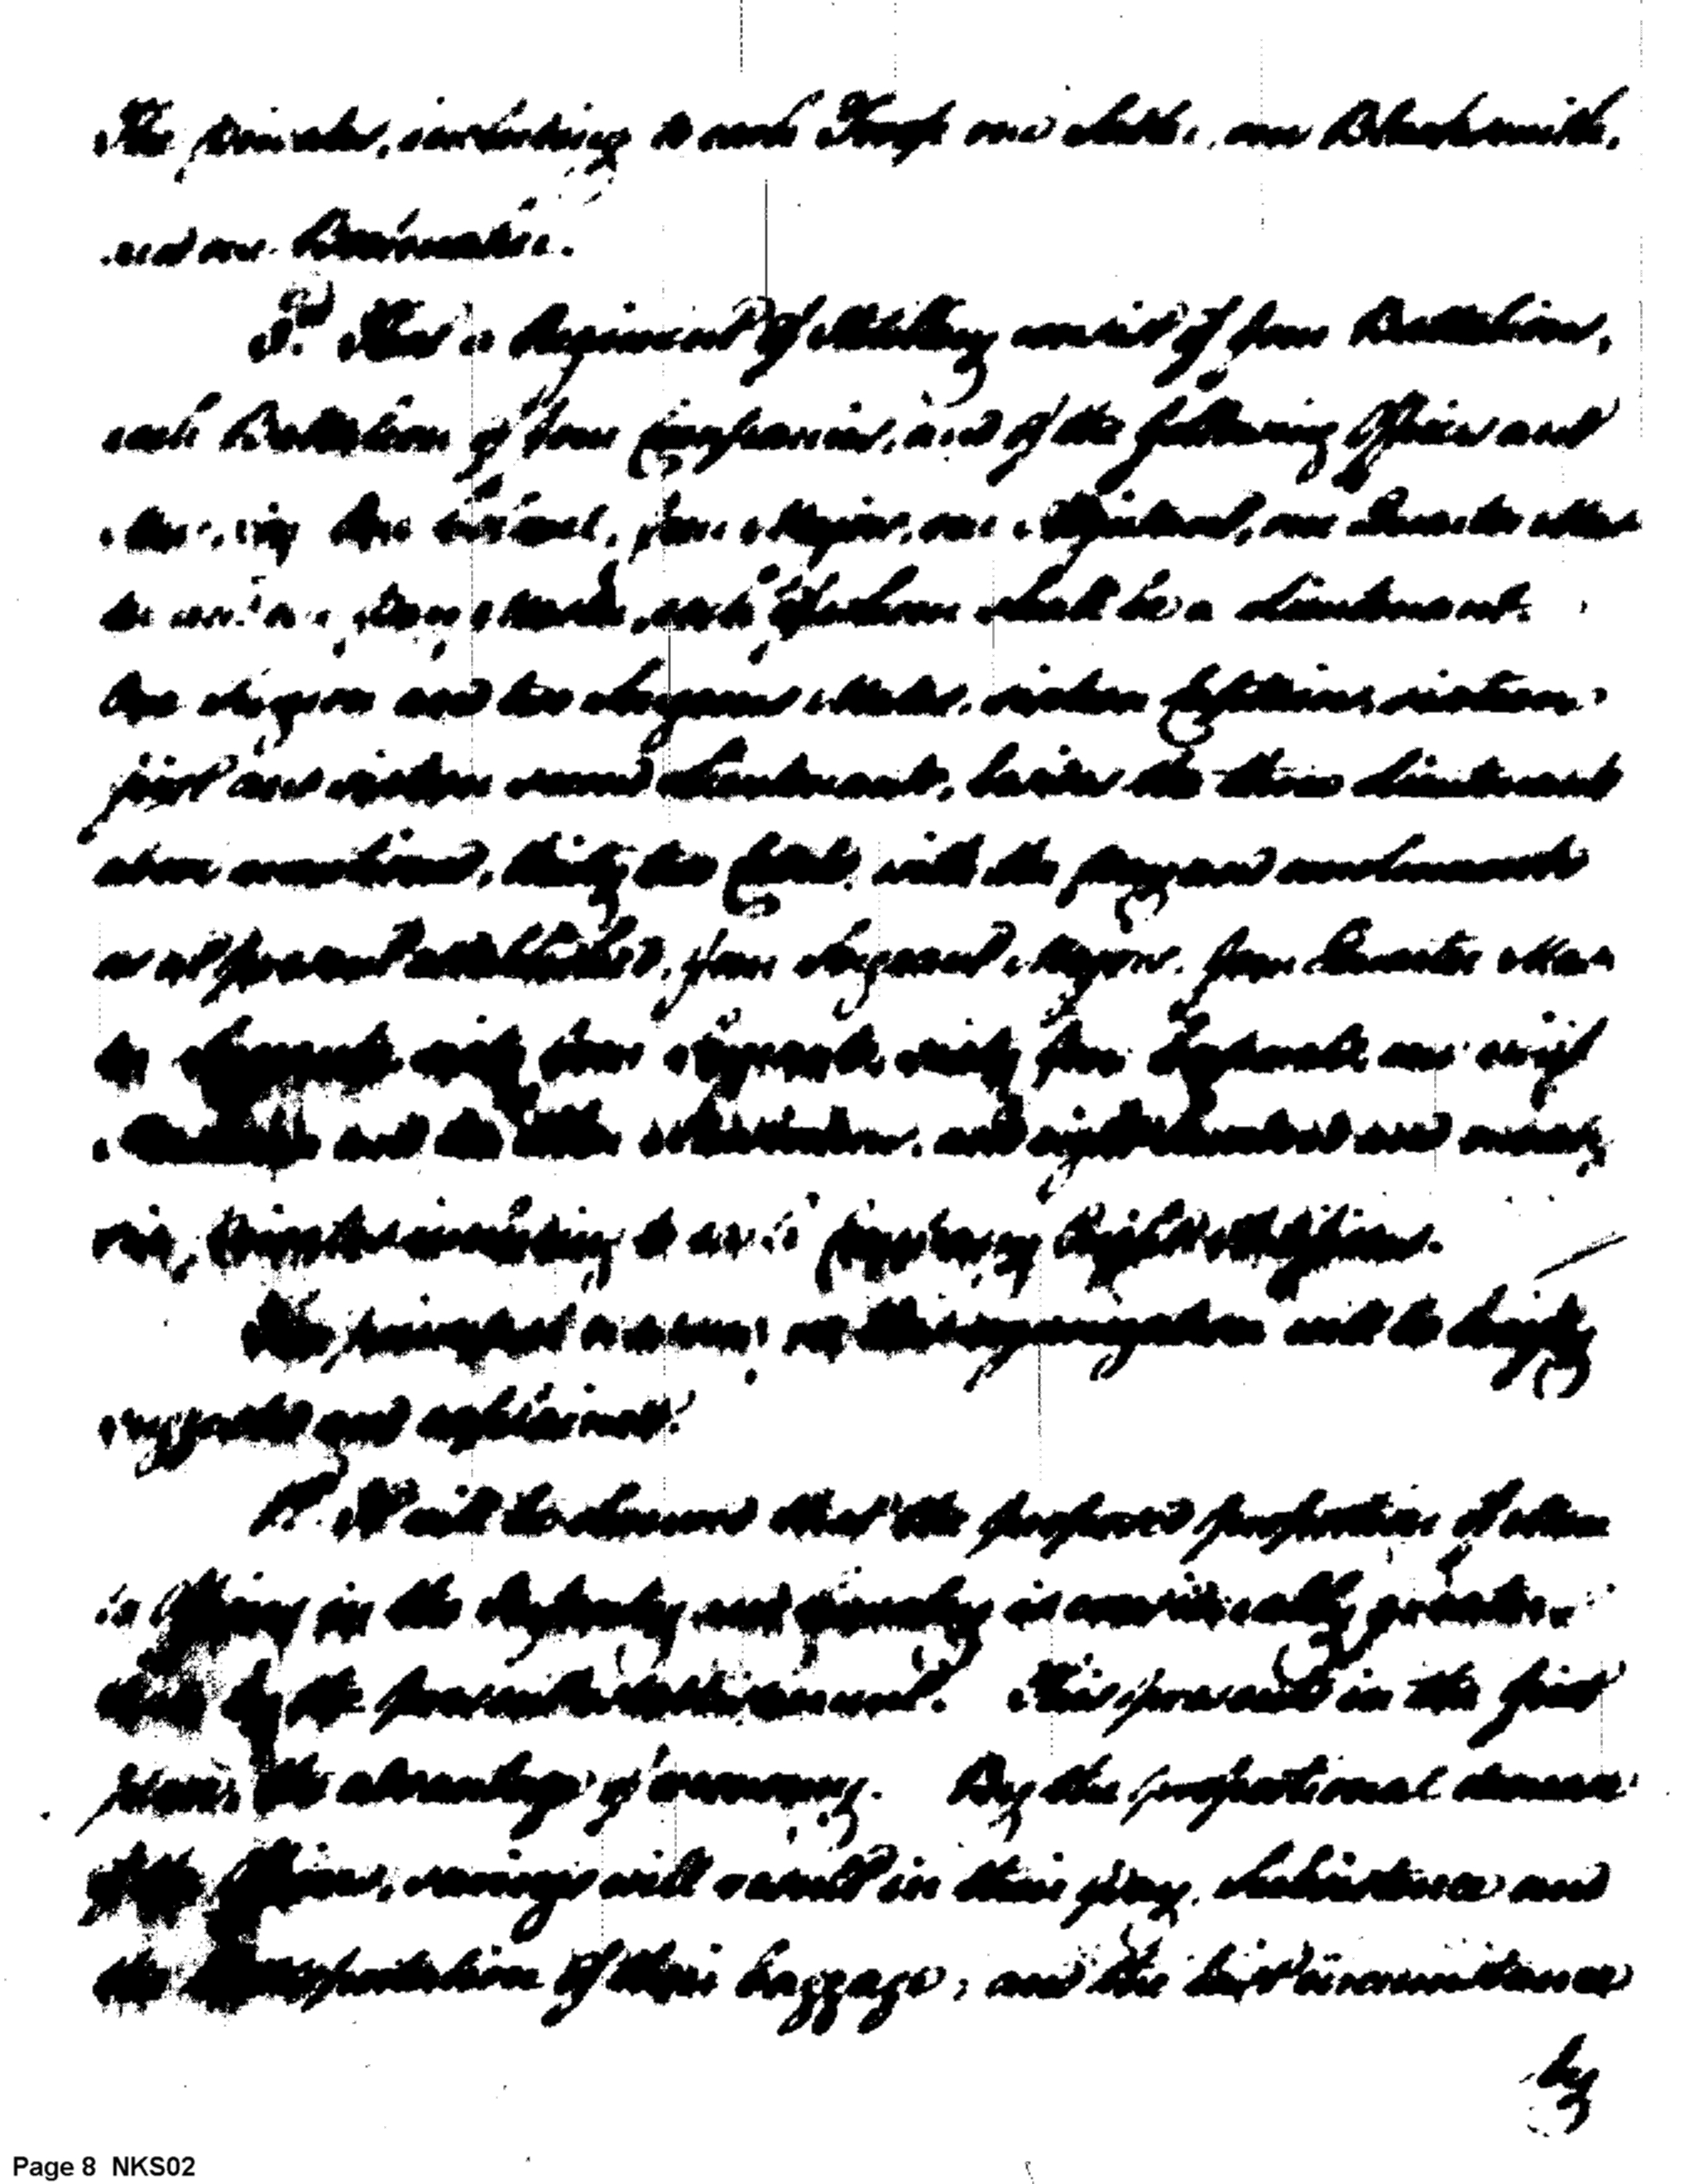 Ten privates, including to each Troop one Sadler, one Blacksmith,
and one Bootmaker.
3d. That a Regiment of Artillery consist of four Battalions,
each Battalion of four Companies, and of the following Officers and
men, viz One Colonel, four Majors, one Adjutant, one Quarter Mas
ter and one Pay Master, each of whom shall be a Lieutenant.
One Surgeon and two Surgeons Mates, sixteen Captains, sixteen
first and sixteen second Lieutenants, besides the three Lieutenants
above mentioned, thirty two Cadets with the pay and emoluments
as at present established, four Sergeant Majors, four Quarter Mas
ter Sergeants sixty four Sergeants sixty four Corporals one chief
Musician and ten other Musicians, and eight hundred and ninety
six privates including to each Company Eight Artificers.
The principal reasons for this organization will be briefly
suggested and explained.
1st. It will be observed that the proposed proportion of men
to Officers in the Infantry and Cavalry is considerably greater
than by the present establishment. This presents in the first
place the advantage of economy. By the proportional decrease
of the Officers, savings will result in their pay, Subsistence and
the transportation of their baggage; and the last circumstance
by
Page 8 NKS02